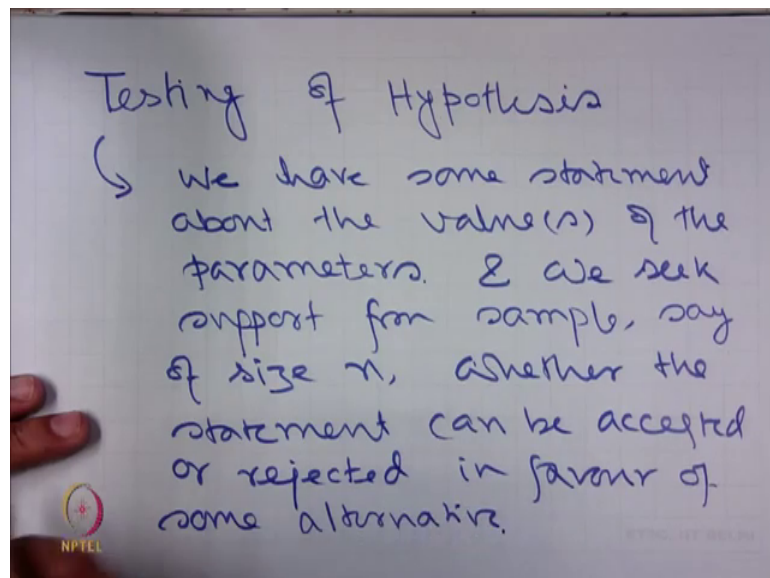 Testing of Hypothesis
We have some statement
about the value(s) of the
parameters. & we seek
support from sample, say
of size n, whether the
statement can be accepted
or rejected in favour of
some alternative.
NPTEL